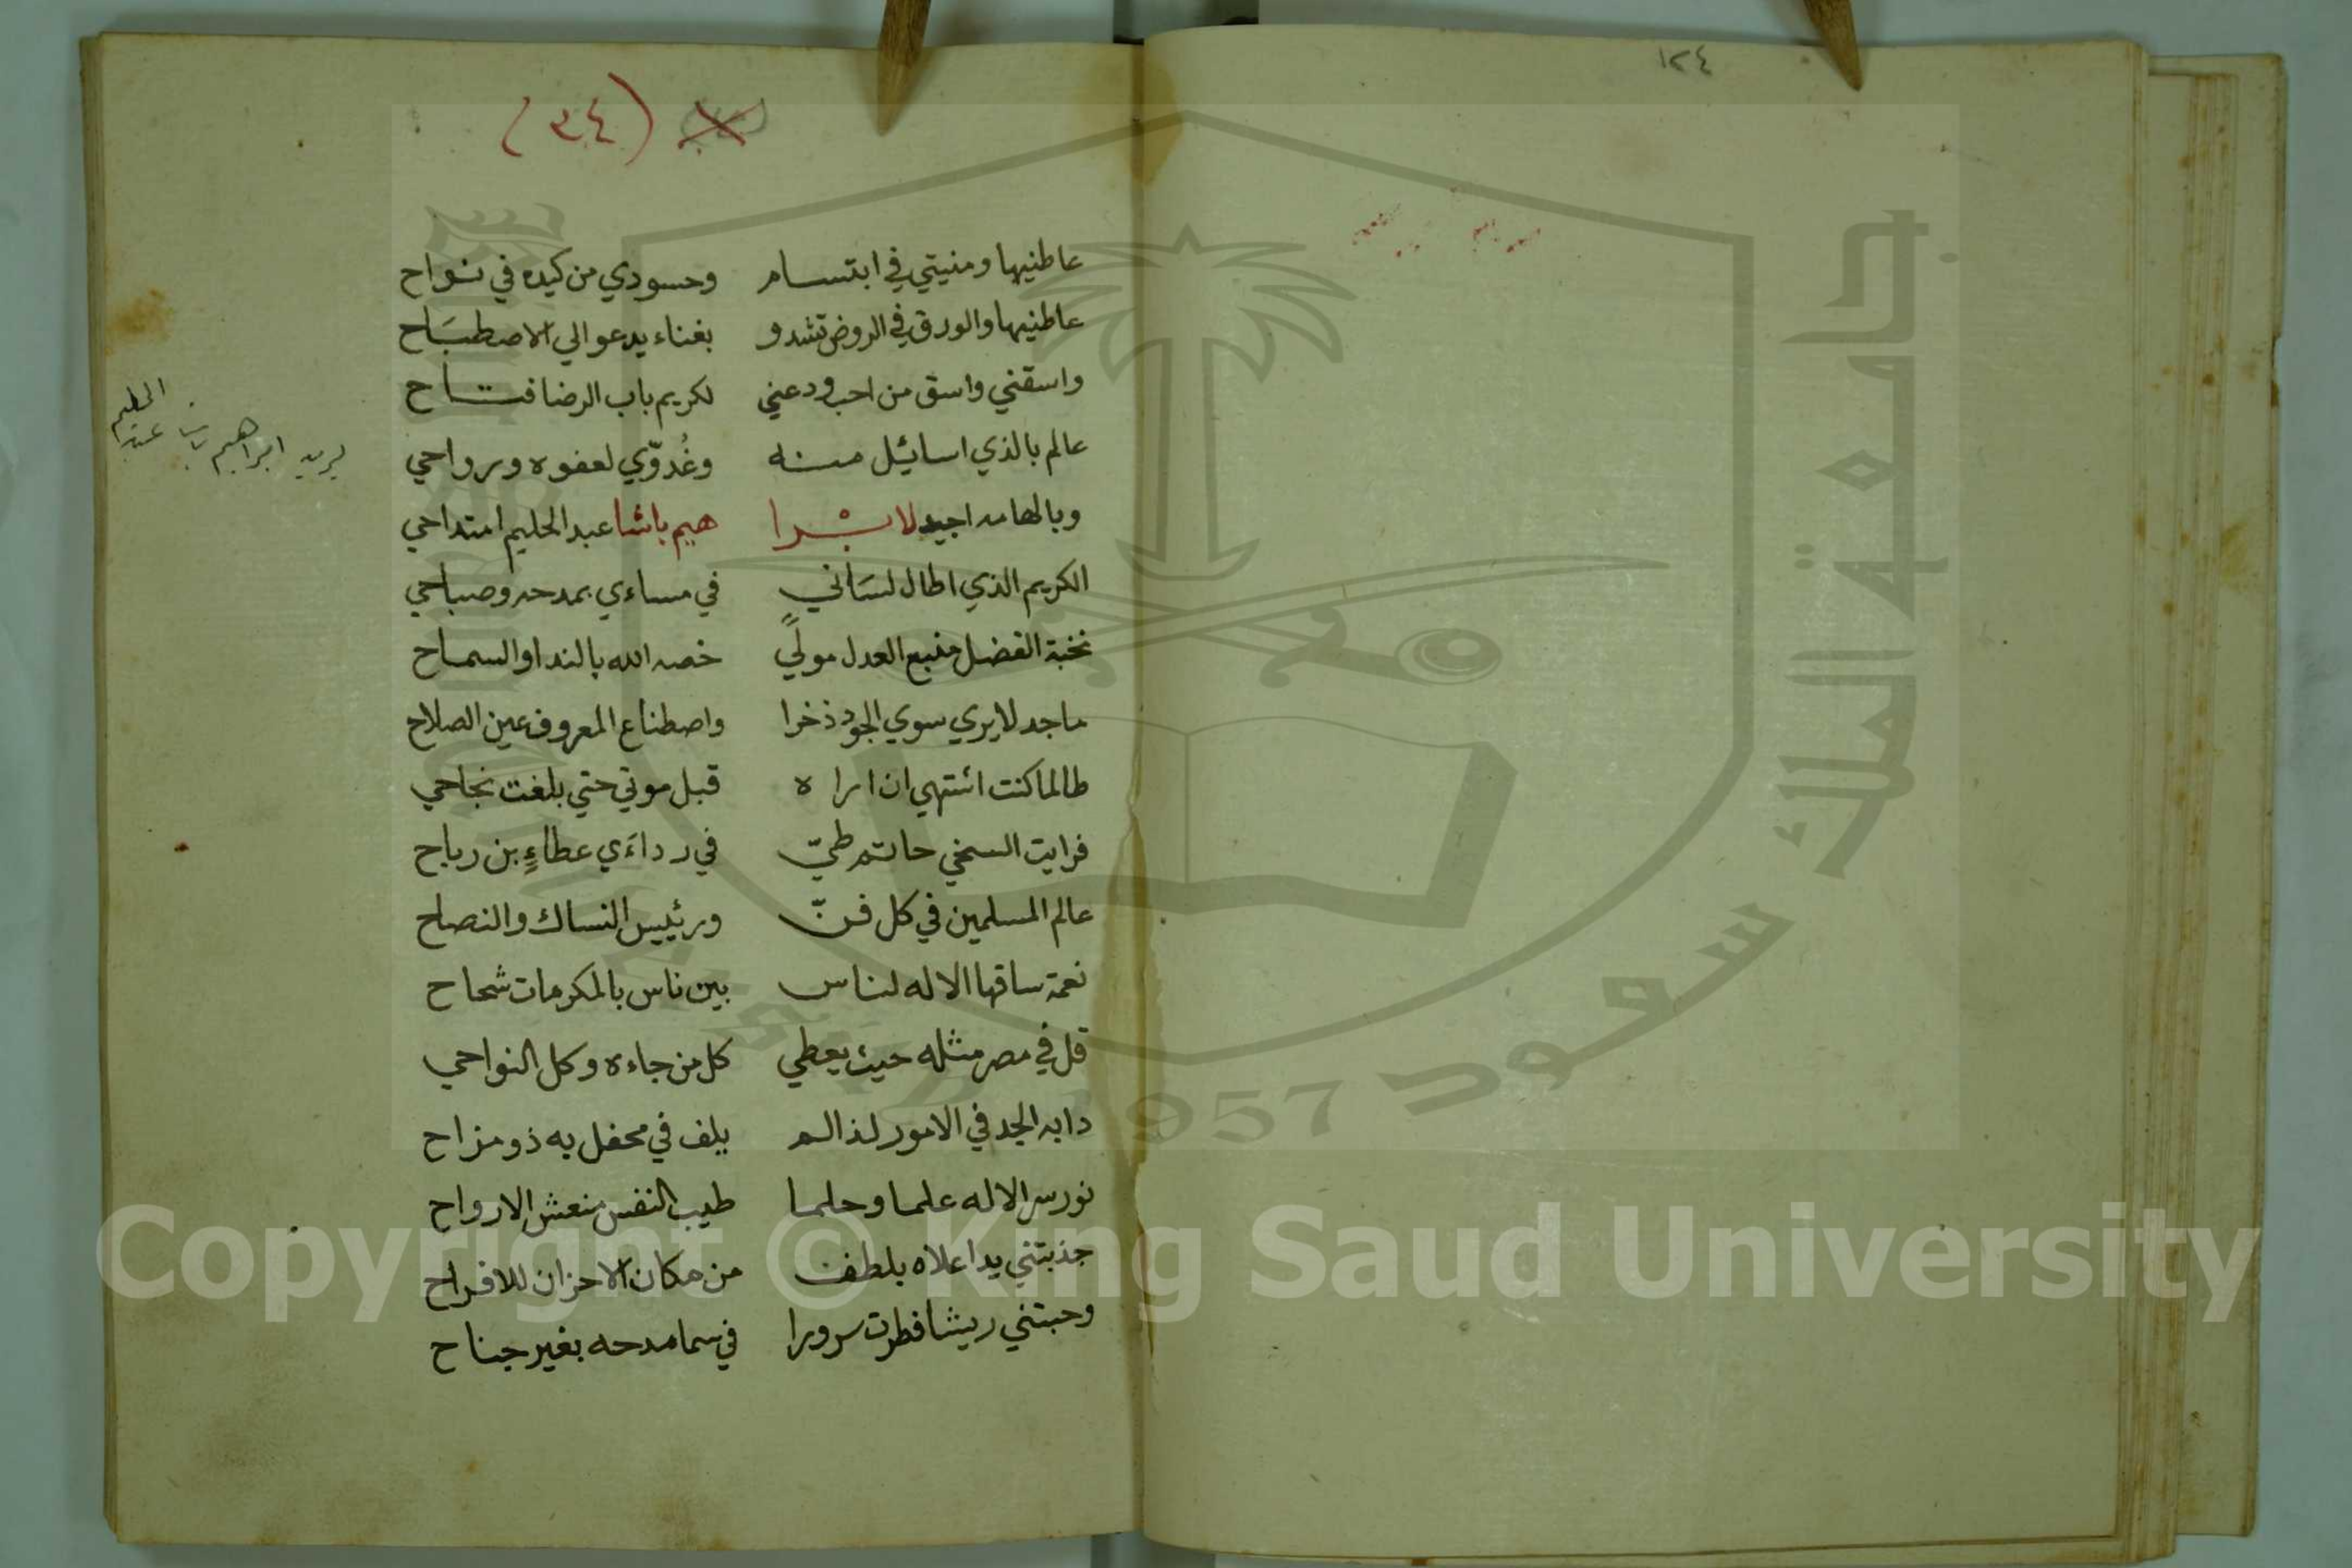 ١٢٤
(٣٤)
عاطنيها ومنيتي في ابتسام وحسودي من كيده في نواح
عاطنيها والورق في الروض تشدو بغناء يدعو الي الاصطبَاح
واسقني واسق من احب ودعني لكريم باب الرضا فتاح
عالم بالذي اسائيل منه وغُدوّي لعفوه ورواحي
وبالهامه اجيد لابْرا هيم باشا عبد الحليم امتداحي
يريد ابراهيم باشا عبد الحليم
الكريم الذي اطال لسَاني في مساءي بمدحه وصباحي
نخبة الفضل منبع العدل مولىً خصه الله بالندا والسماح
ماجد لا يري سوي الجود ذخرا واصطناع المعروف عين الصلاح
طالما كنت اشتهي ان اراه قبل موتي حتي بلغت نجاحي
فرايت السخي حاتم طيّ في رداءَي عطاءٍ بن رباح
عالم المسلمين في كل فنّ ورئييس النساك والنصاح
نعمة ساقها الاله لناس بين ناس بالمكرمات شحاح
قل في مصر مثله حيث يعطي كل من جاءه وكل النواحي
دابه الجد في الامور لذا لم يلف في محفل به ذو مزاح
نور سر الاله علما وحلما طيب النفس منعش الارواح
جذبتني يد اعلاه بلطف من مكان الاحزان للافراح
وحبتني ريشا فطرت سرورا في سما مدحه بغير جناح
جامعة الملك سعود
1957
Copyright © King Saud University